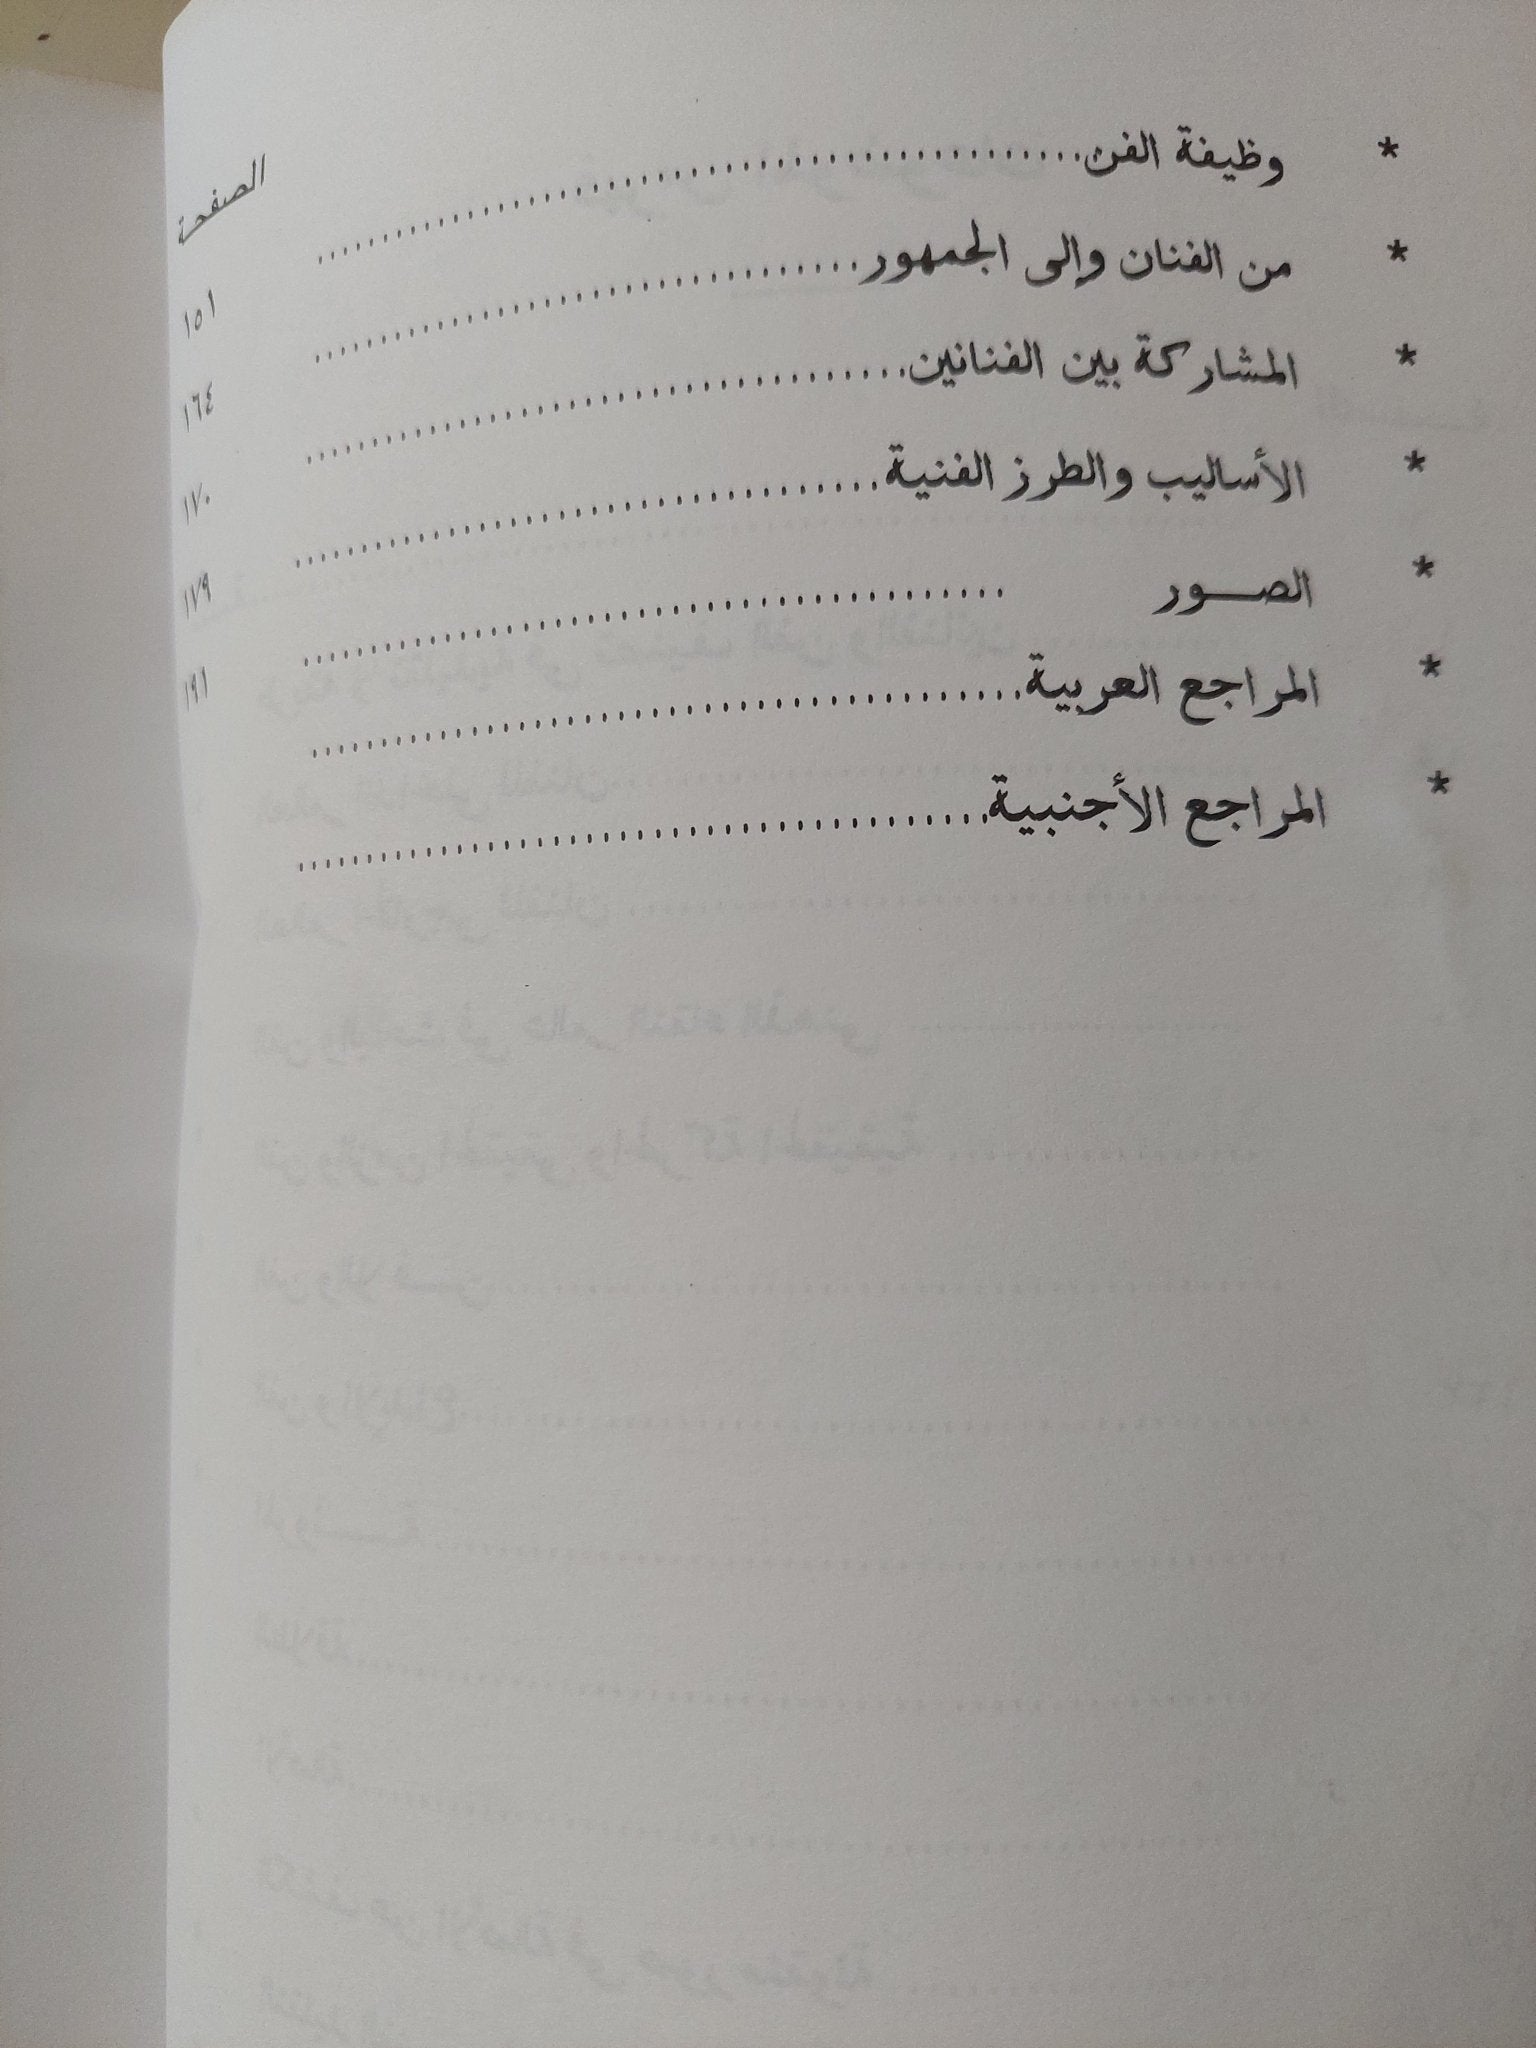 الصفحة
* وظيفة الفن........................................ ١٥١
* من الفنان وإلى الجمهور........................................ ١٦٤
* المشاركة بين الفنانين........................................ ١٧٠
* الأساليب والطرز الفنية........................................ ١٧٩
* الصـــور ........................................ ١٩١
* المراجع العربية........................................
* المراجع الأجنبية........................................